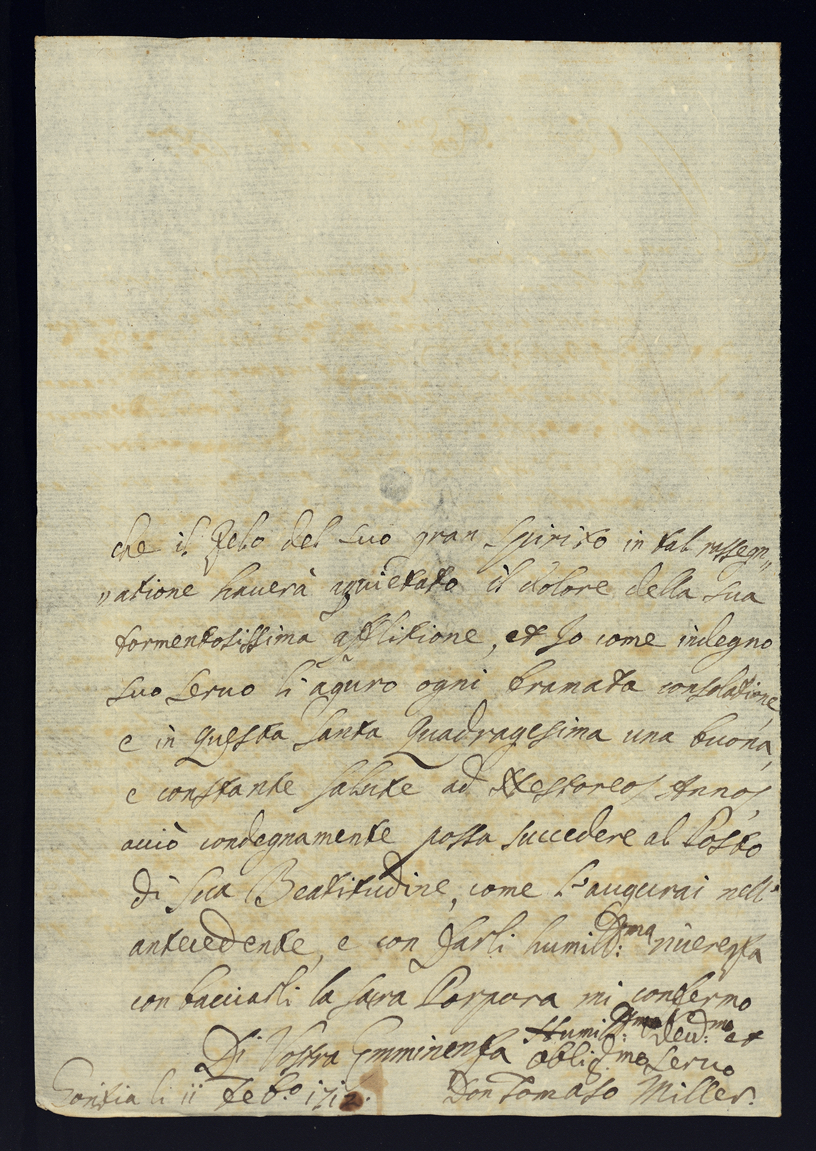 che il Zelo del suo gran Spirito in tal rassegn„
„atione hauerà quietato il dolore della sua
tormentosissima afflitione, et Io come indegno
suo seruo li aguro ogni bramata consolatione
e in questa santa Quadragesima una buona,
e constante salute ad Nestoreos Annos,
acciò condegnamente possa succedere al Posto
di Sua Beatitudine, come l'augurai nell'
antecedente, e con farli humilд:ma riuerenza
con bacciarli la sacra Porpora mi confermo
Di Vostra Emminenza Humil:mo Deu:mo et
oblig:mo Seruo
Gorizia li 11 Feb.o 1712. Don Tomaso Miller.